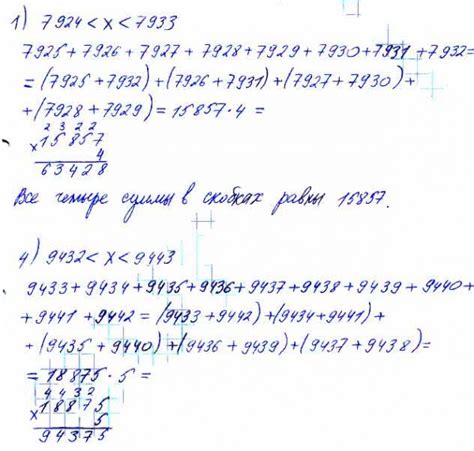 1) 7924 < x < 7933
7925 + 7926 + 7927 + 7928 + 7929 + 7930 + 7931 + 7932 =
= (7925 + 7932) + (7926 + 7931) + (7927 + 7930) +
+ (7928 + 7929) = 15857 · 4 =
2 3 2 2
× 15857
4
63428
Все четыре суммы в скобках равны 15857.
4) 9432 < x < 9443
9433 + 9434 + 9435 + 9436 + 9437 + 9438 + 9439 + 9440 +
+ 9441 + 9442 = (9433 + 9442) + (9434 + 9441) +
+ (9435 + 9440) + (9436 + 9439) + (9437 + 9438) =
= 18875 · 5 =
4 4 3 2
× 18875
5
94375